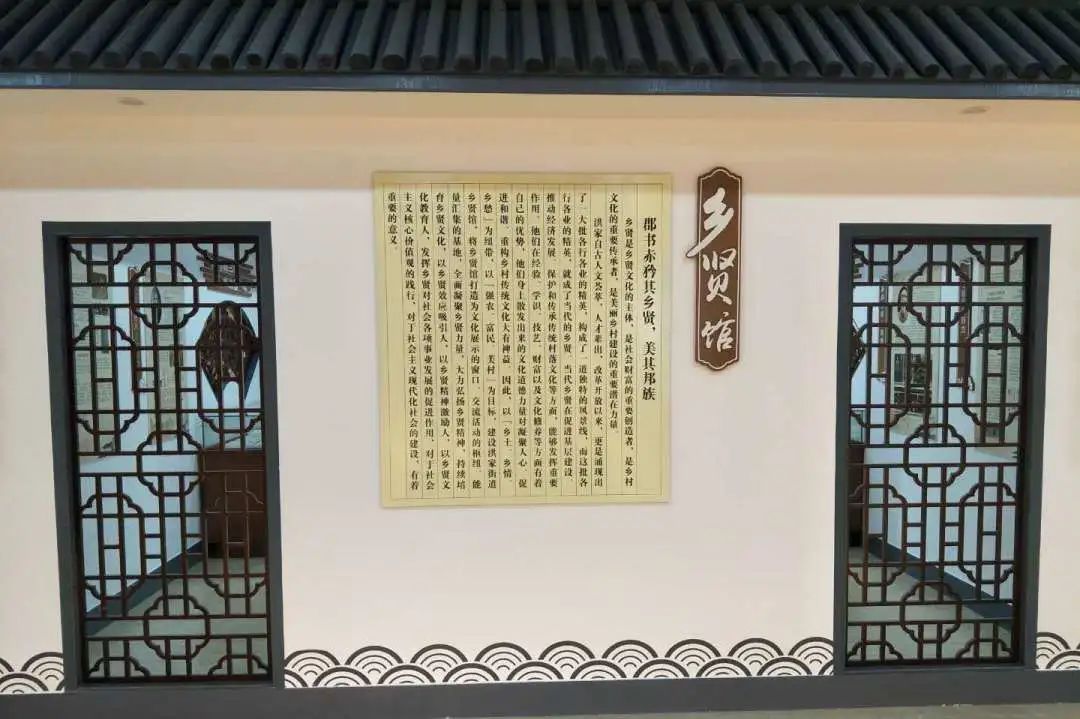 乡贤馆
郡书赤矜其乡贤，美其邦族
乡贤是乡贤文化的主体，是社会财富的重要创造者，是乡村
文化的重要传承者，是美丽乡村建设的重要潜在力量。
洪家自古人文荟萃，人才辈出，改革开放以来，更是涌现出
了一大批各行各业的精英，构成了一道独特的风景线，而这批各
行各业的精英，就成了当代的乡贤。当代乡贤在促进基层建设、
推动经济发展、保护和传承传统村落文化等方面，能够发挥重要
作用。他们在经验、学识、技艺、财富以及文化修养等方面有着
自己的优势，他们身上散发出来的文化道德力量对凝聚人心、促
进和谐、重构乡村传统文化大有裨益。因此，以“乡土、乡情、
乡愁”为纽带，以“强农、富民、美村”为目标，建设洪家街道
乡贤馆，将乡贤馆打造为文化展示的窗口、交流活动的枢纽、能
量汇集的基地，全面凝聚乡贤力量，大力弘扬乡贤精神，持续培
育乡贤文化，以乡贤效应吸引人，以乡贤精神激励人，以乡贤文
化教育人，发挥乡贤对社会各项事业发展的促进作用，对于社会
主义核心价值观的践行，对于社会主义现代化社会的建设，有着
重要的意义。